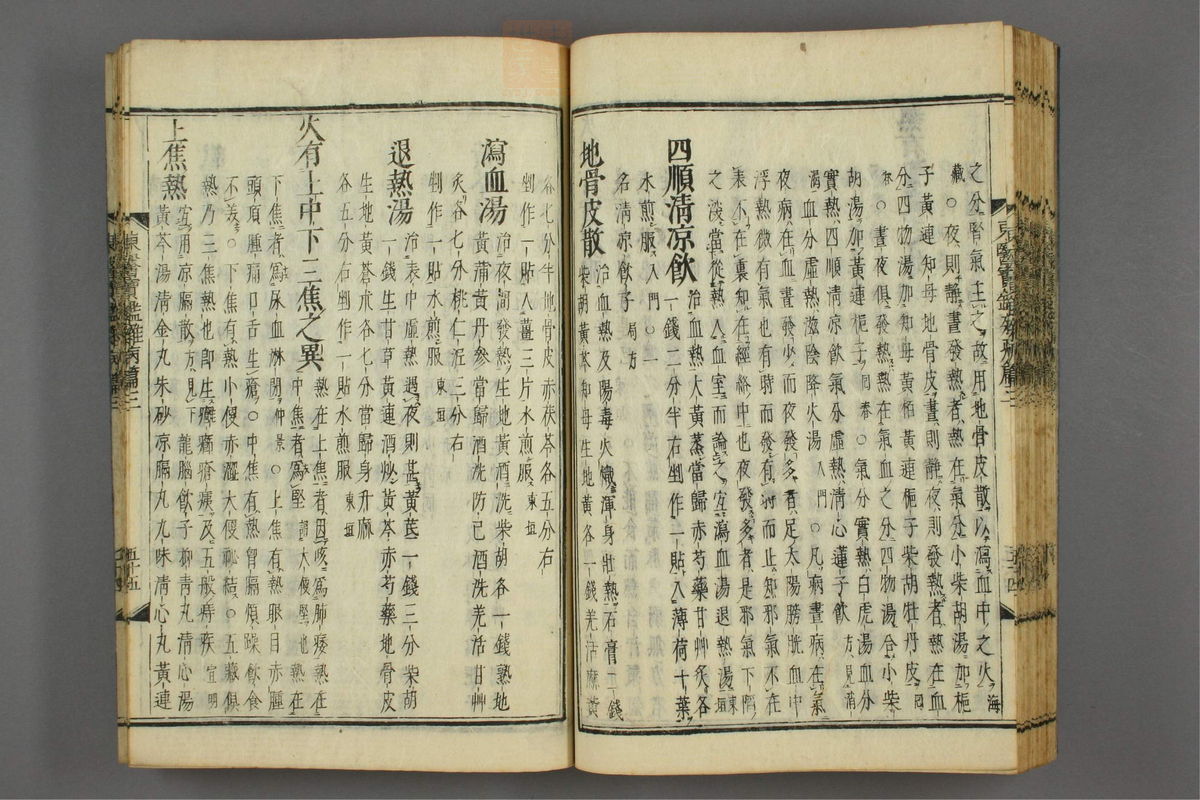 之分腎氣主之故用地骨皮散以瀉血中之火海
藏○夜則靜晝發熱者熱在氣分小柴胡湯加梔
子黃連知母地骨皮晝則靜夜則發熱者熱在血
分四物湯加知母黃栢黃連梔子柴胡牡丹皮回
春○晝夜俱發熱熱在氣血之分四物湯合小柴
胡湯加黃連梔子回春○氣分實熱白虎湯血分
實熱四順清凉飲氣分虛熱清心蓮子飲方見消
渴血分虛熱滋陰降火湯入門○凡病晝病在氣
夜病在血晝發少而夜發多者足太陽膀胱血中
浮熱微有氣也有時而發有時而止知邪氣不在
表不在裏知在經絡中也夜發多者是邪氣下陷
之深當從熱入血室而論之宜瀉血湯退熱湯東垣
四順清凉飲
治血熱大黃蒸當歸赤芍藥甘艸灸各
一錢二分半右剉作一貼入薄荷十葉
水煎服入門○一
名清凉飲子局方
地骨皮散
治血熱及陽毒火熾渾身壯熱石膏二錢
柴胡黃芩知母生地黃各一錢羌活麻黃
各七分半地骨皮赤茯苓各五分右
剉作一貼入薑三片水煎服東垣
瀉血湯
治夜間發熱生地黃酒洗柴胡各一錢熟地
黃蒲黃丹參當歸酒洗防已酒洗羌活甘艸
灸各七分桃仁泥三分右
剉作一貼水煎服東垣
退熱湯
治表中虛熱遇夜則甚黃芪一錢三分柴胡
一錢生甘草黃連酒炒黃芩赤芍藥地骨皮
生地黃蒼朮各七分當歸身升麻
各五分右剉作一貼水煎服東垣
火有上中下三焦之異
熱在上焦者因咳爲肺痿熱在
中焦者爲堅謂大便堅也熱在
下焦者爲尿血淋閉仲景○上焦有熱眼目赤腫
頭項腫痛口舌生瘡○中焦有熱胷膈煩躁飮食
不美○下焦有熱小便赤澁大便祕結○五藏俱
熱乃三焦熱也卽生癰癤瘡痍及五般痔疾宜明
上焦熱
宜用凉隔散方見下龍腦飮子抑靑丸淸心湯
黃芩湯淸金丸朱砂凉膈丸九味淸心丸黃連
東醫寶鑑雜病篇三
五十五